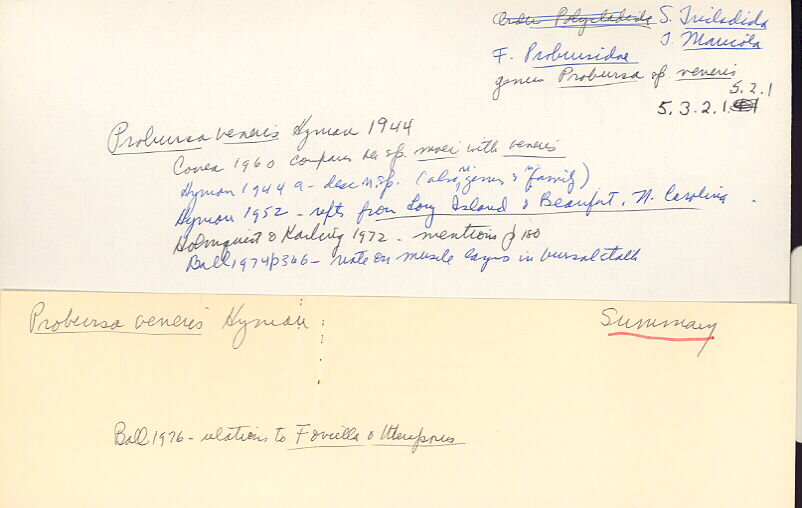 Order Polycladida S. Tricladida
I. Maricola
F. Probursidae
genus Probursa sp. veneris
5.2.1
5.3.2.1.
Probursa veneris Hyman 1944
Correa 1960 compares her sp. moei with veneris
Hyman 1944 a - desc n. sp. (also, n. genus & n. family)
Hyman 1952 - repts from Long Island & Beaufort, N. Carolina
Holmquist & Karling 1972 - mentions p 180
Ball 1974 p 366 - note on muscle layers in bursal stalk
Probursa veneris Hyman
Summary
Ball 1976 - relations to Foviella & Uteriporus